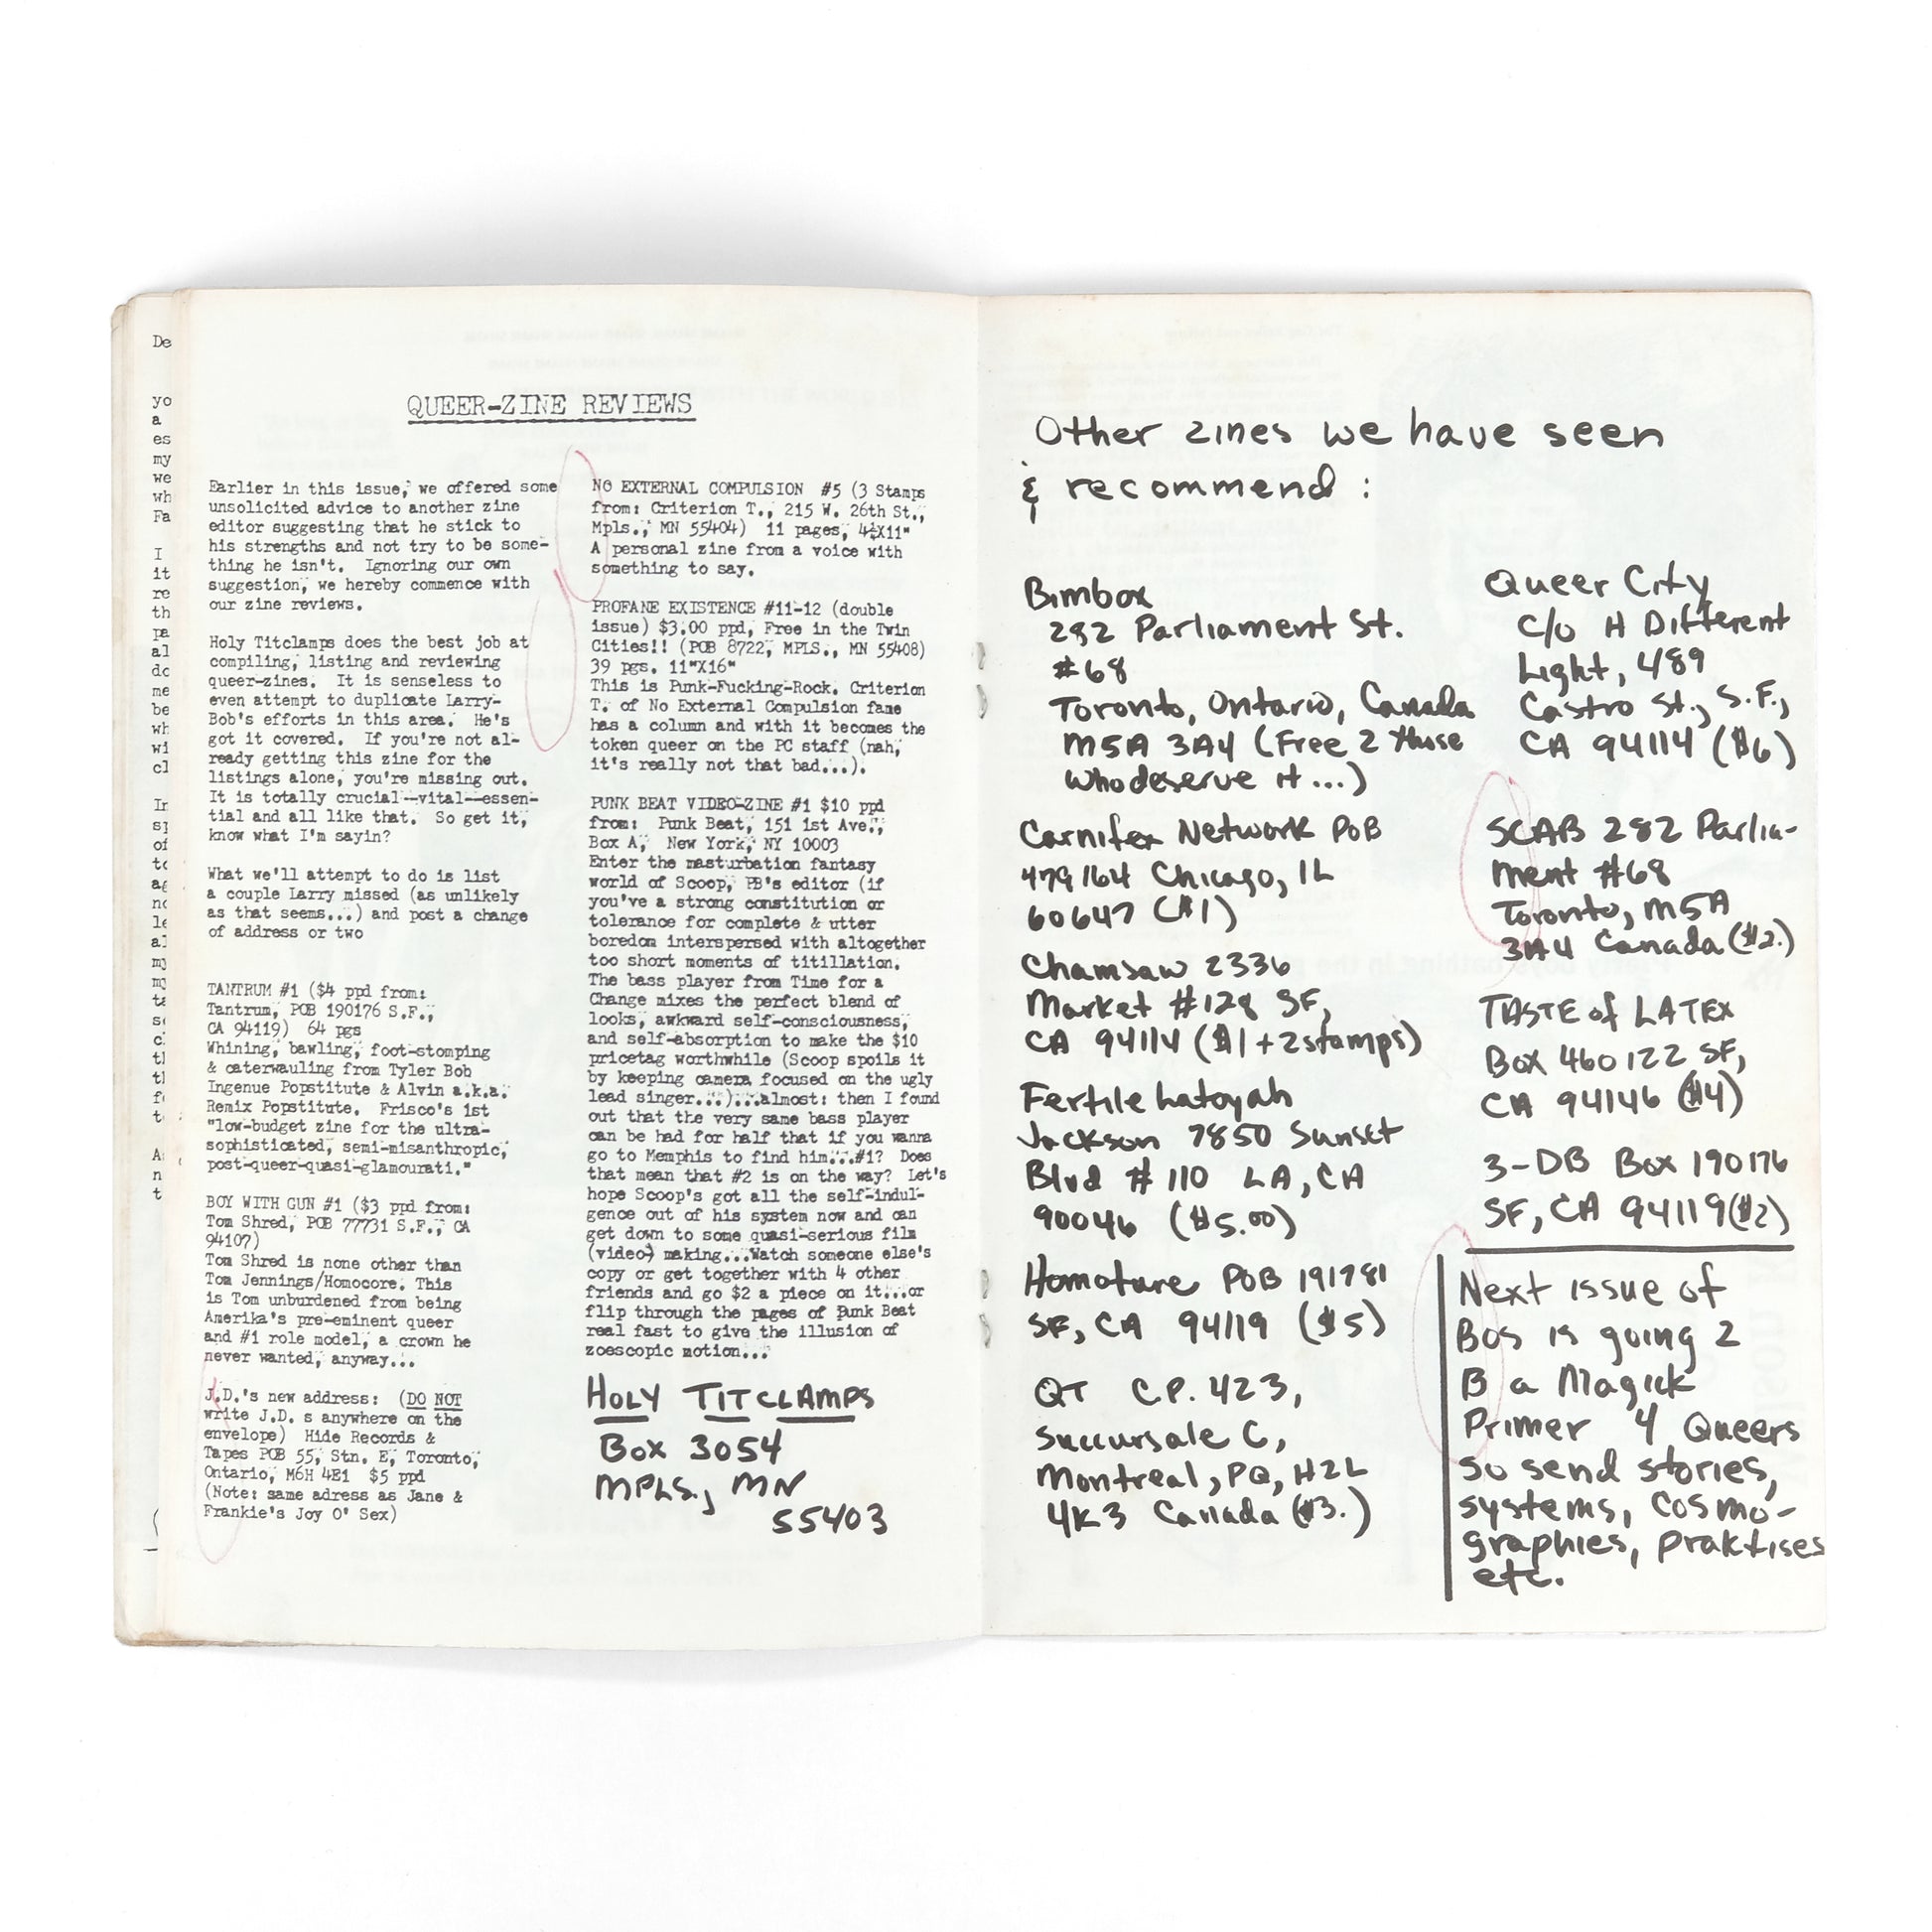 QUEER-ZINE REVIEWS
Earlier in this issue, we offered some
unsolicited advice to another zine
editor suggesting that he stick to
his strengths and not try to be some-
thing he isn't. Ignoring our own
suggestion, we hereby commence with
our zine reviews.
Holy Titclamps does the best job at
compiling, listing and reviewing
queer-zines. It is senseless to
even attempt to duplicate Larry-
Bob's efforts in this area. He's
got it covered. If you're not al-
ready getting this zine for the
listings alone, you're missing out.
It is totally crucial--vital--essen-
tial and all like that. So get it,
know what I'm sayin?
What we'll attempt to do is list
a couple Larry missed (as unlikely
as that seems...) and post a change
of address or two
TANTRUM #1 ($4 ppd from:
Tantrum, POB 190176 S.F.,
CA 94119) 64 pgs
Whining, bawling, foot-stomping
& caterwauling from Tyler Bob
Ingenue Popstitute & Alvin a.k.a.
Remix Popstitute. Frisco's 1st
"low-budget zine for the ultra-
sophisticated, semi-misanthropic,
post-queer-quasi-glamourati."
BOY WITH GUN #1 ($3 ppd from:
Tom Shred, POB 77731 S.F., CA
94107)
Tom Shred is none other than
Tom Jennings/Homocore. This
is Tom unburdened from being
Amerika's pre-eminent queer
and #1 role model, a crown he
never wanted, anyway...
J.D.'s new address: (DO NOT
write J.D. s anywhere on the
envelope) Hide Records &
Tapes POB 55, Stn. E, Toronto,
Ontario, M6H 4E1 $5 ppd
(Note: same adress as Jane &
Frankie's Joy O' Sex)
NO EXTERNAL COMPULSION #5 (3 Stamps
from: Criterion T., 215 W. 26th St.,
Mpls., MN 55404) 11 pages, 4¼X11"
A personal zine from a voice with
something to say.
PROFANE EXISTENCE #11-12 (double
issue) $3.00 ppd, Free in the Twin
Cities!! (POB 8722, MPLS., MN 55408)
39 pgs. 11"X16"
This is Punk-Fucking-Rock. Criterion
T. of No External Compulsion fame
has a column and with it becomes the
token queer on the PC staff (nah,
it's really not that bad...).
PUNK BEAT VIDEO-ZINE #1 $10 ppd
from: Punk Beat, 151 1st Ave.,
Box A, New York, NY 10003
Enter the masturbation fantasy
world of Scoop, PB's editor (if
you've a strong constitution or
tolerance for complete & utter
boredom interspersed with altogether
too short moments of titillation.
The bass player from Time for a
Change mixes the perfect blend of
looks, awkward self-consciousness,
and self-absorption to make the $10
pricetag worthwhile (Scoop spoils it
by keeping camera focused on the ugly
lead singer...)...almost: then I found
out that the very same bass player
can be had for half that if you wanna
go to Memphis to find him...#1? Does
that mean that #2 is on the way? Let's
hope Scoop's got all the self-indul-
gence out of his system now and can
get down to some quasi-serious film
(video) making...Watch someone else's
copy or get together with 4 other
friends and go $2 a piece on it...or
flip through the pages of Punk Beat
real fast to give the illusion of
zoescopic motion...
HOLY TITCLAMPS
Box 3054
MPLS., MN
55403
Other zines we have seen
& recommend:
Bimbox
282 Parliament St.
#68
Toronto, Ontario, Canada
M5A 3A4 (Free 2 those
who deserve it...)
Carnifex Network POB
479164 Chicago, IL
60647 ($1)
Chainsaw 2336
Market #128 SF,
CA 94114 ($1+2stamps)
Fertile Latoyah
Jackson 7850 Sunset
Blvd #110 LA, CA
90046 ($5.00)
Homoture POB 191781
SF, CA 94119 ($5)
QT C.P. 423,
Succursale C,
Montreal, PQ, H2L
4K3 Canada ($3.)
Queer City
C/o A Different
Light, 489
Castro St., S.F.,
CA 94114 ($6)
SCAB 282 Parlia-
ment #68
Toronto, M5A
3A4 Canada ($2.)
TASTE of LATEX
Box 460122 SF,
CA 94146 ($4)
3-DB Box 190176
SF, CA 94119 ($2)
Next issue of
BOS is going 2
B a Magick
Primer 4 Queers
so send stories,
systems, cosmo-
graphies, praktises
etc.